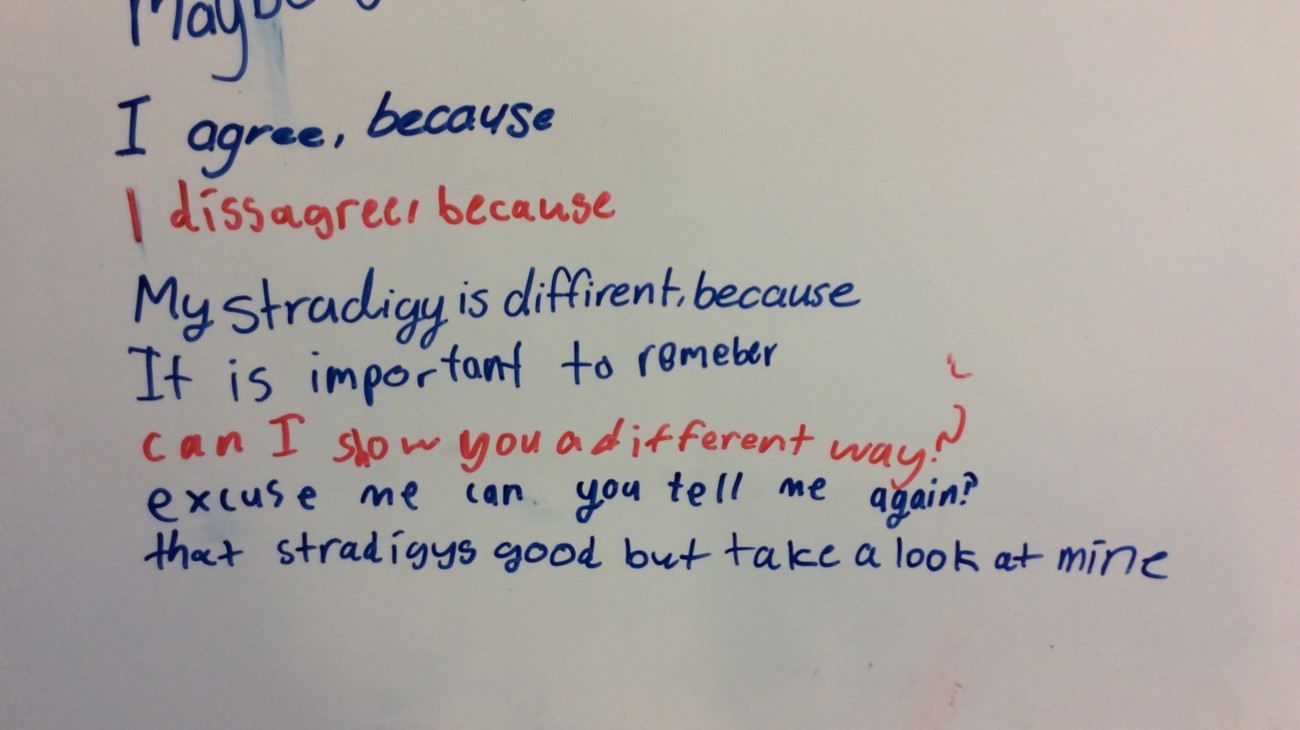 Maybe
I agree, because
I dissagree, because
My stradigy is diffirent, because
It is important to remeber
can I show you a different way?
excuse me can you tell me again?
that stradigys good but take a look at mine